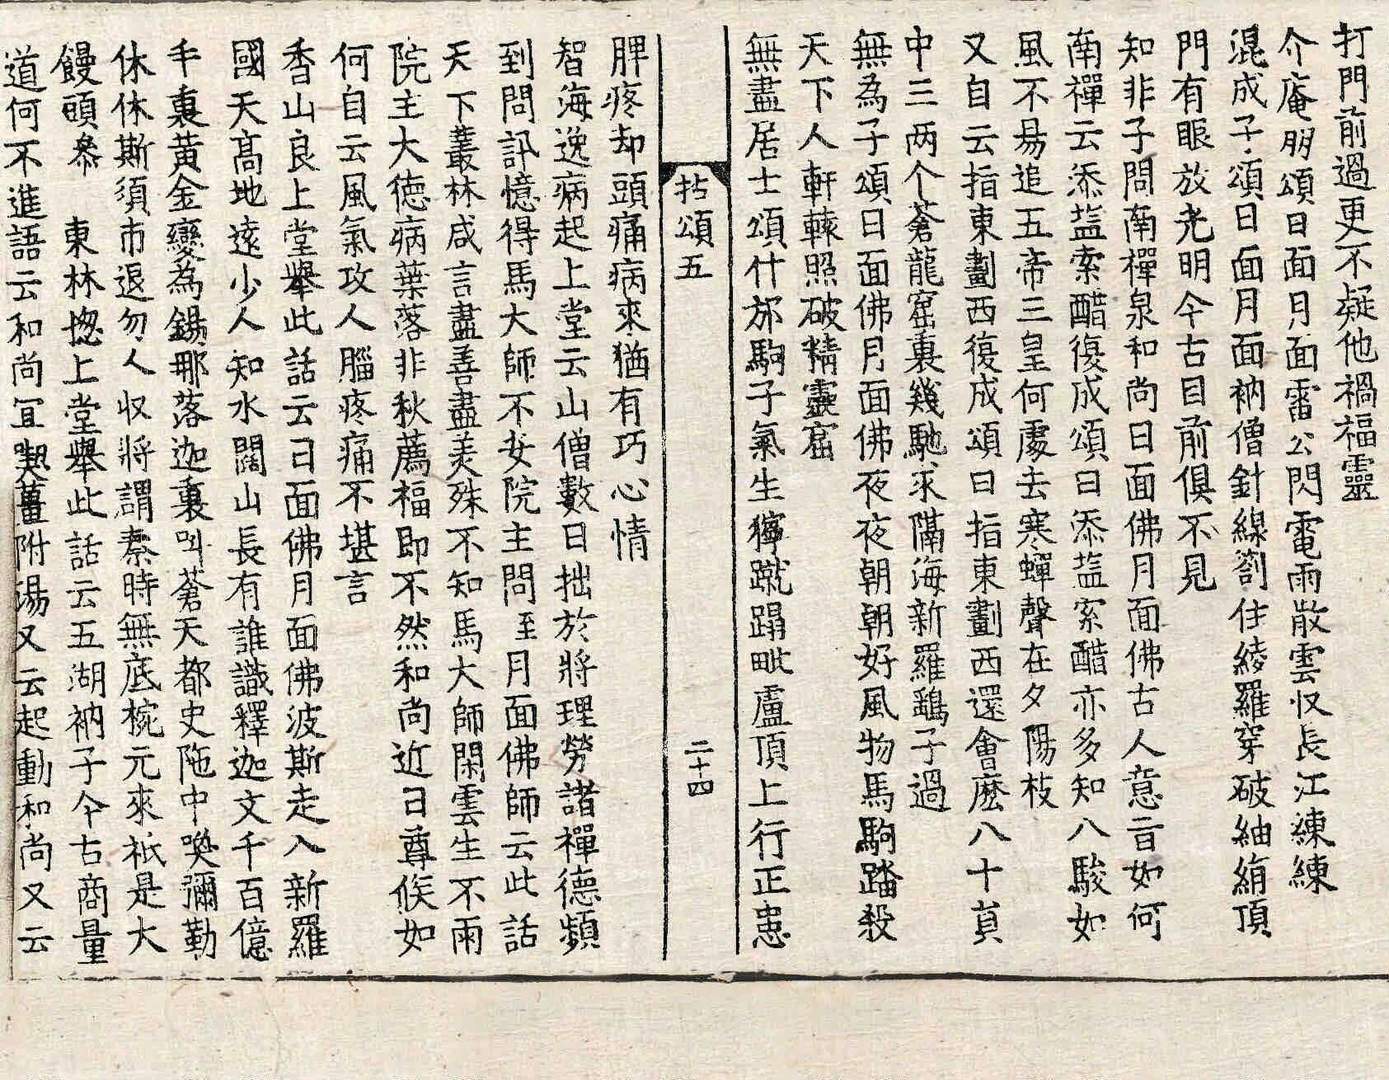 打門前過更不疑他禍福靈
介庵朋頌日面月面雷公閃電雨散雲収長江練練
混成子頌日面月面衲僧針線劄住綾羅穿破紬絹頂
門有眼放光明今古目前俱不見
知非子問南禪泉和尚日面佛月面佛古人意旨如何
南禪云添盐索醋復成頌曰添盐索醋亦多知八駿如
風不易追五帝三皇何處去寒蟬聲在夕陽枝
又自云指東劃西復成頌曰指東劃西還會麽八十員
中三两个蒼龍窟裏幾馳求隔海新羅鷂子過
無為子頌日面佛月面佛夜夜朝朝好風物馬駒踏殺
天下人軒轅照破精靈窟
無盡居士頌什邡駒子氣生獰蹴蹋毗盧頂上行正患
拈頌五
二十四
脾疼却頭痛病來猶有巧心情
智海逸病起上堂云山僧數日拙於將理勞諸禪德頻
到問訊憶得馬大師不安院主問至月面佛師云此話
天下叢林咸言盡善盡美殊不知馬大師閑雲生不雨
院主大德病葉落非秋薦福即不然和尚近日尊候如
何自云風氣攻人腦疼痛不堪言
香山良上堂舉此話云日面佛月面佛波斯走入新羅
國天高地遠少人知水闊山長有誰識釋迦文千百億
手裏黃金變為錫那落迦裏叫蒼天都史陁中喚彌勒
休休斯須市退勿人収將謂秦時無底椀元來祇是大
饅頭叅 東林捴上堂舉此話云五湖衲子今古商量
道何不進語云和尚宜喫薑附湯又云起動和尚又云